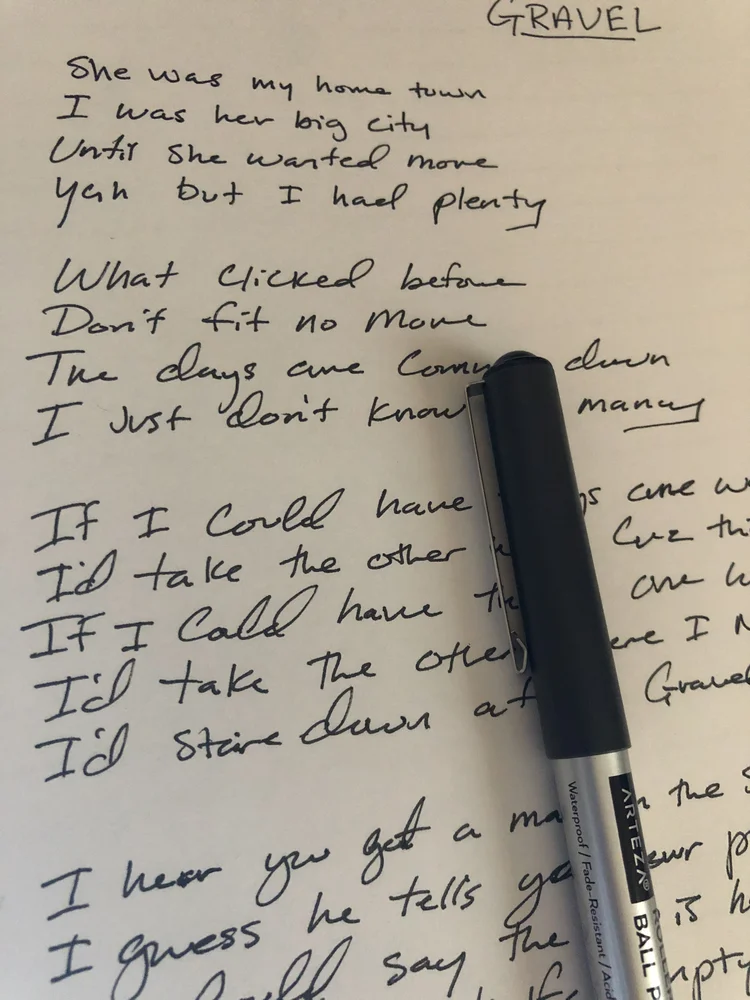 GRAVEL
She was my home town
I was her big city
Until she wanted more
Yah but I had plenty
What clicked before
Don't fit no more
The days are down
I Just don't know many
If I could have are
I'd take the other Cuz
If I Could have one
I'd take the other I
I'd stare down at Gravel
I hear you got a the
I guess he tells your
say the is
ARTEZA®
BALL
Waterproof / Fade-Resistant /